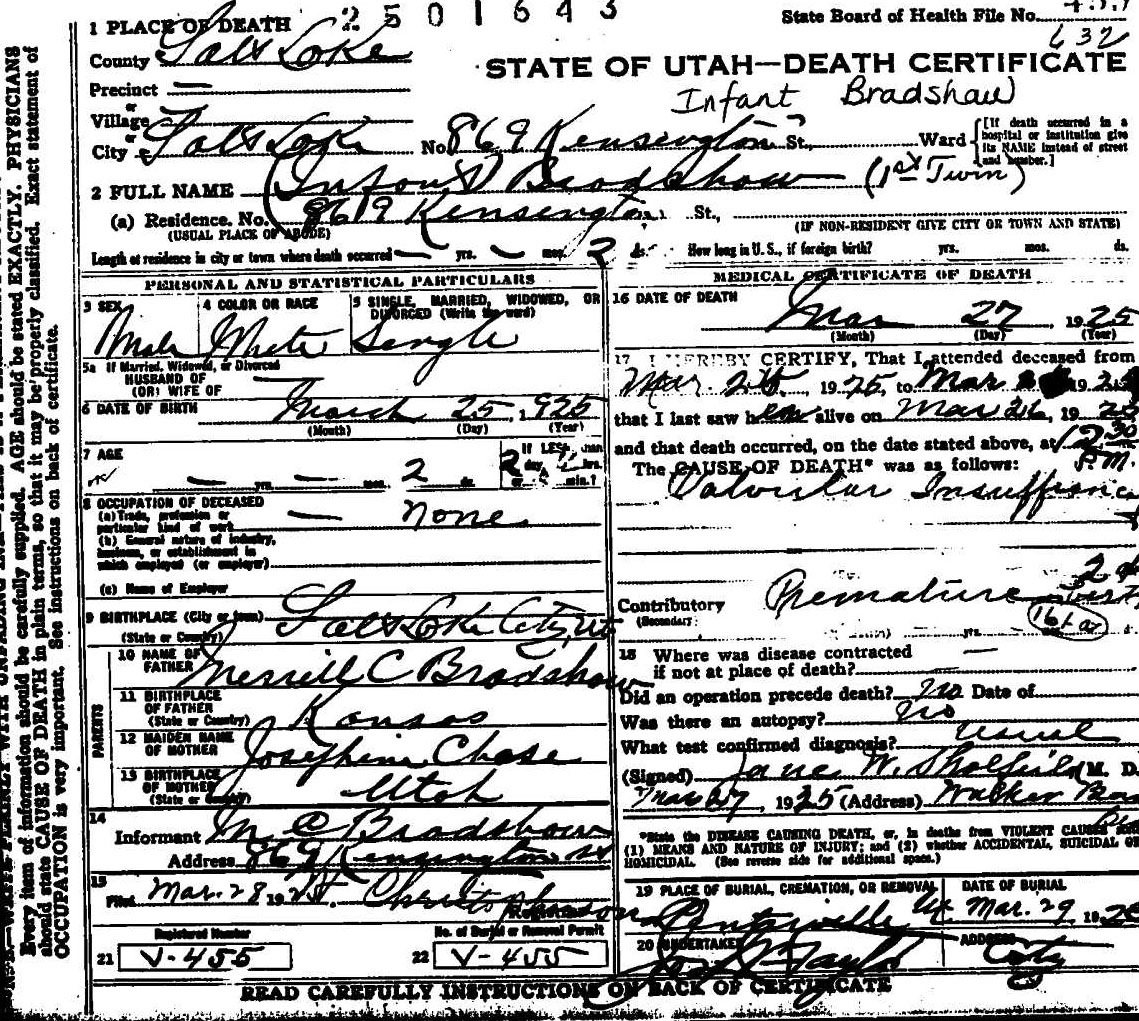 2501643
State Board of Health File No.
632
1 PLACE OF DEATH
County Salt Lake
STATE OF UTAH—DEATH CERTIFICATE
Precinct —
or
Infant Bradshaw
Village
or
City Salt Lake No. 869 Kensington St., Ward
[If death occurred in a hospital or institution give its NAME instead of street and number.]
2 FULL NAME Infant Bradshaw (1st Twin)
(a) Residence. No. 869 Kensington St.,
(USUAL PLACE OF ABODE)
(IF NON-RESIDENT GIVE CITY OR TOWN AND STATE)
Length of residence in city or town where death occurred — yrs. — mos. 2 ds. How long in U. S., if foreign birth? yrs. mos. ds.
PERSONAL AND STATISTICAL PARTICULARS
3 SEX
Male
4 COLOR OR RACE
White
5 SINGLE, MARRIED, WIDOWED, OR DIVORCED (Write the word)
Single
5a If Married, Widowed, or Divorced
HUSBAND OF
(OR) WIFE OF —
6 DATE OF BIRTH March 25, 1925
(Month) (Day) (Year)
7 AGE
— yrs. — mos. 2 ds.
If LESS than
8 OCCUPATION OF DECEASED
(a) Trade, profession or particular kind of work — none
(b) General nature of industry, business, or establishment in which employed (or employer)
(c) Name of Employer
9 BIRTHPLACE (City or town) Salt Lake City, Ut
(State or Country)
PARENTS
10 NAME OF FATHER Merrill C Bradshaw
11 BIRTHPLACE OF FATHER
(State or Country) Kansas
12 MAIDEN NAME OF MOTHER Josephine Chase
13 BIRTHPLACE OF MOTHER
(State or Country) Utah
14
Informant M C Bradshaw
Address 869 Kensington
15
Filed Mar. 28 192
Registrar
Registered Number
No. of Burial or Removal Permit
21 V-455
22 V-455
MEDICAL CERTIFICATE OF DEATH
16 DATE OF DEATH
Mar 27, 1925
(Month) (Day) (Year)
17 I HEREBY CERTIFY, That I attended deceased from
Mar. 1925, to Mar 192
that I last saw h alive on Mar 26, 19
and that death occurred, on the date stated above, at 12:30
P.M.
The CAUSE OF DEATH* was as follows:
Valvular
Contributory Premature
(Secondary)
18 Where was disease contracted
if not at place of death? —
Did an operation precede death? No Date of
Was there an autopsy? No
What test confirmed diagnosis? Usual
(Signed) Jane W. (M. D.
Mar 27, 1925 (Address) Walker
*State the DISEASE CAUSING DEATH, or, in deaths from VIOLENT CAUSES
(1) MEANS AND NATURE OF INJURY; and (2) whether ACCIDENTAL, SUICIDAL OR
HOMICIDAL. (See reverse side for additional space.)
19 PLACE OF BURIAL, CREMATION, OR REMOVAL
DATE OF BURIAL
Huntsville Ut Mar. 29
20 UNDERTAKER
Taylor
ADDRESS
City
READ CAREFULLY INSTRUCTIONS ON BACK OF CERTIFICATE
Every item of information should be carefully supplied. AGE should be stated EXACTLY. PHYSICIANS
should state CAUSE OF DEATH in plain terms, so that it may be properly classified. Exact statement of
OCCUPATION is very important. See instructions on back of certificate.